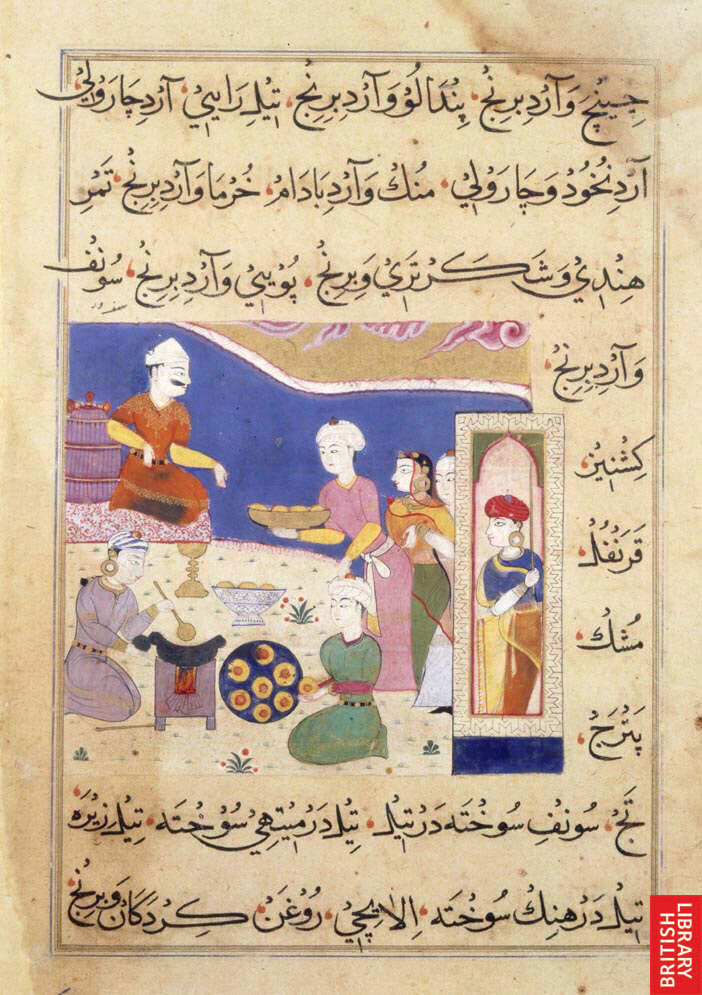 چینچ وَآردِ بِرِنْج، پِنْدَالُوْ وَآردِ بِرِنْج، تیْلِ رَایِیْ، آردِ چَارَوْلِیْ
آردِ نُخُوْدْ وَ چَارَوْلِيْ، مُنْكْ وَآردِ بَادَامْ، خُرْمَا وَآردِ بِرِنْج، تَمْرِ
هِنْدِيْ وَ شَاكَرْ تَرِيْ وَ بِرِنْجْ، پُوْیِيْ وَآردِ بِرِنْجْ، سُوْنْف
وَآردِ بِرِنْجْ،
كِشْنِیْز،
قَرَنْفُلْ،
مُشْك،
پَتْرَجْ،
تَجْ، سُوْنْفِ سُوْخْتَه دَرْ تِیْلْ، تِیْلْ دَرْ مِیْتْهِيْ سُوْخْتَه، تِیْلِ زِیْرَه
تِیْلْ دَرْ هِنْك سُوْخْتَه، اِلَایِچِيْ، رُوْغَنْ، كِرْدَكَانْ وَ بِرِنْجْ
BRITISH
LIBRARY